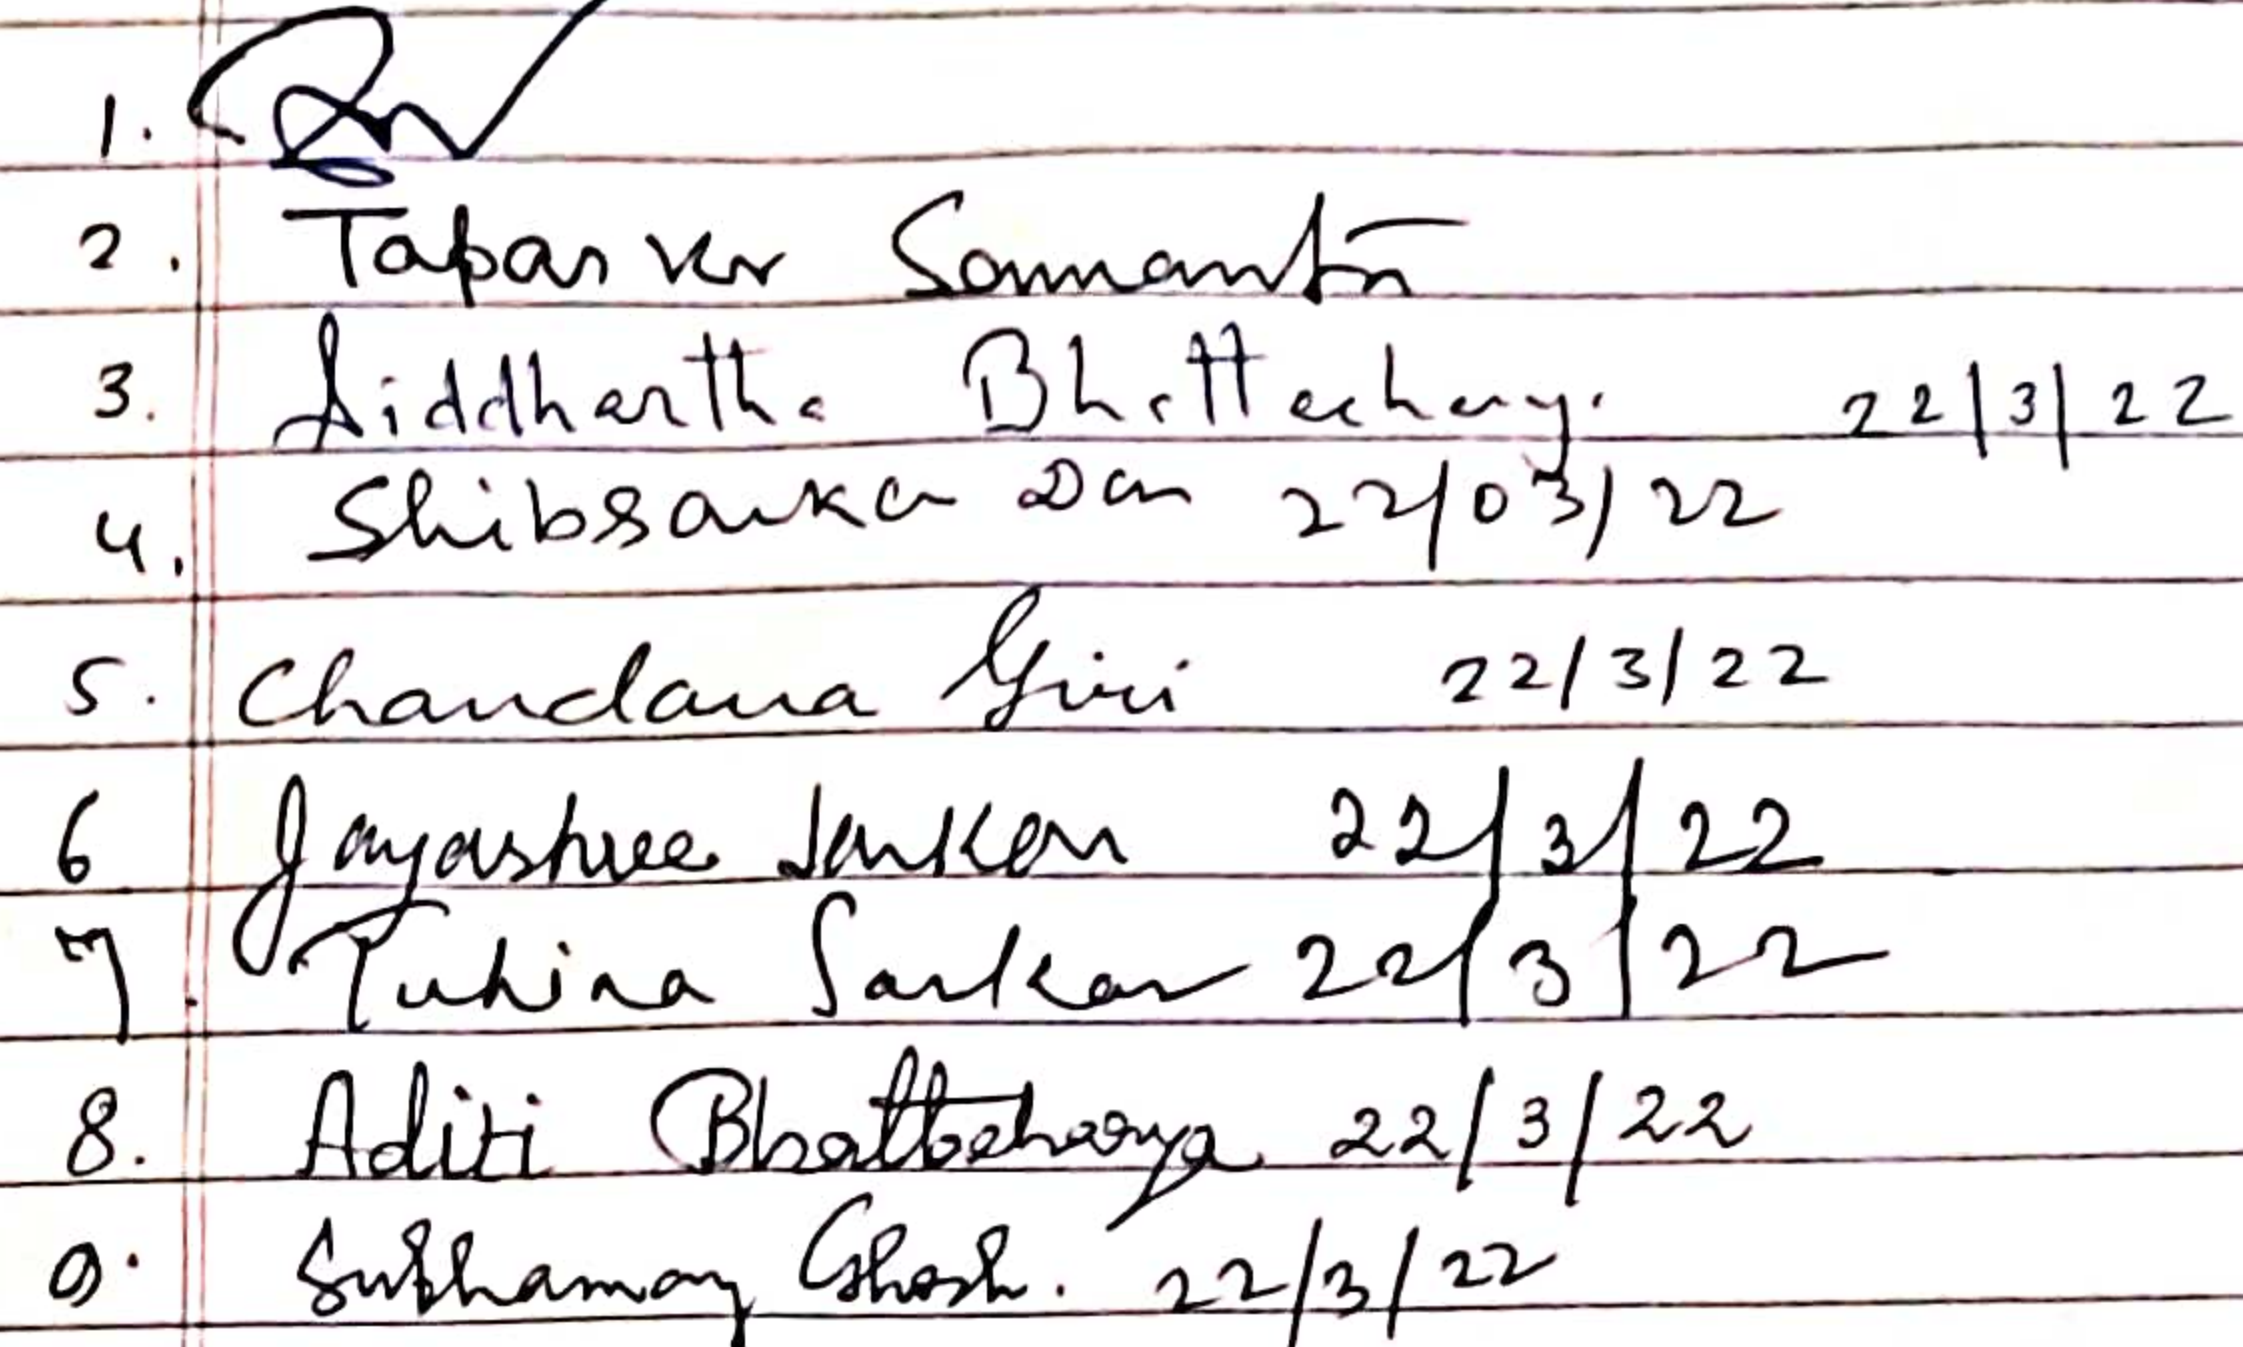 1.
2. Tapas Kr Samanta
3. Siddhartha Bhattacharya 22/3/22
4. Shibsankar Das 22/03/22
5. Chandana Giri 22/3/22
6 Jayashree Sarkar 22/3/22
7. Tuhina Sarkar 22/3/22
8. Aditi Bhattacharya 22/3/22
9. Subhamay Ghosh. 22/3/22